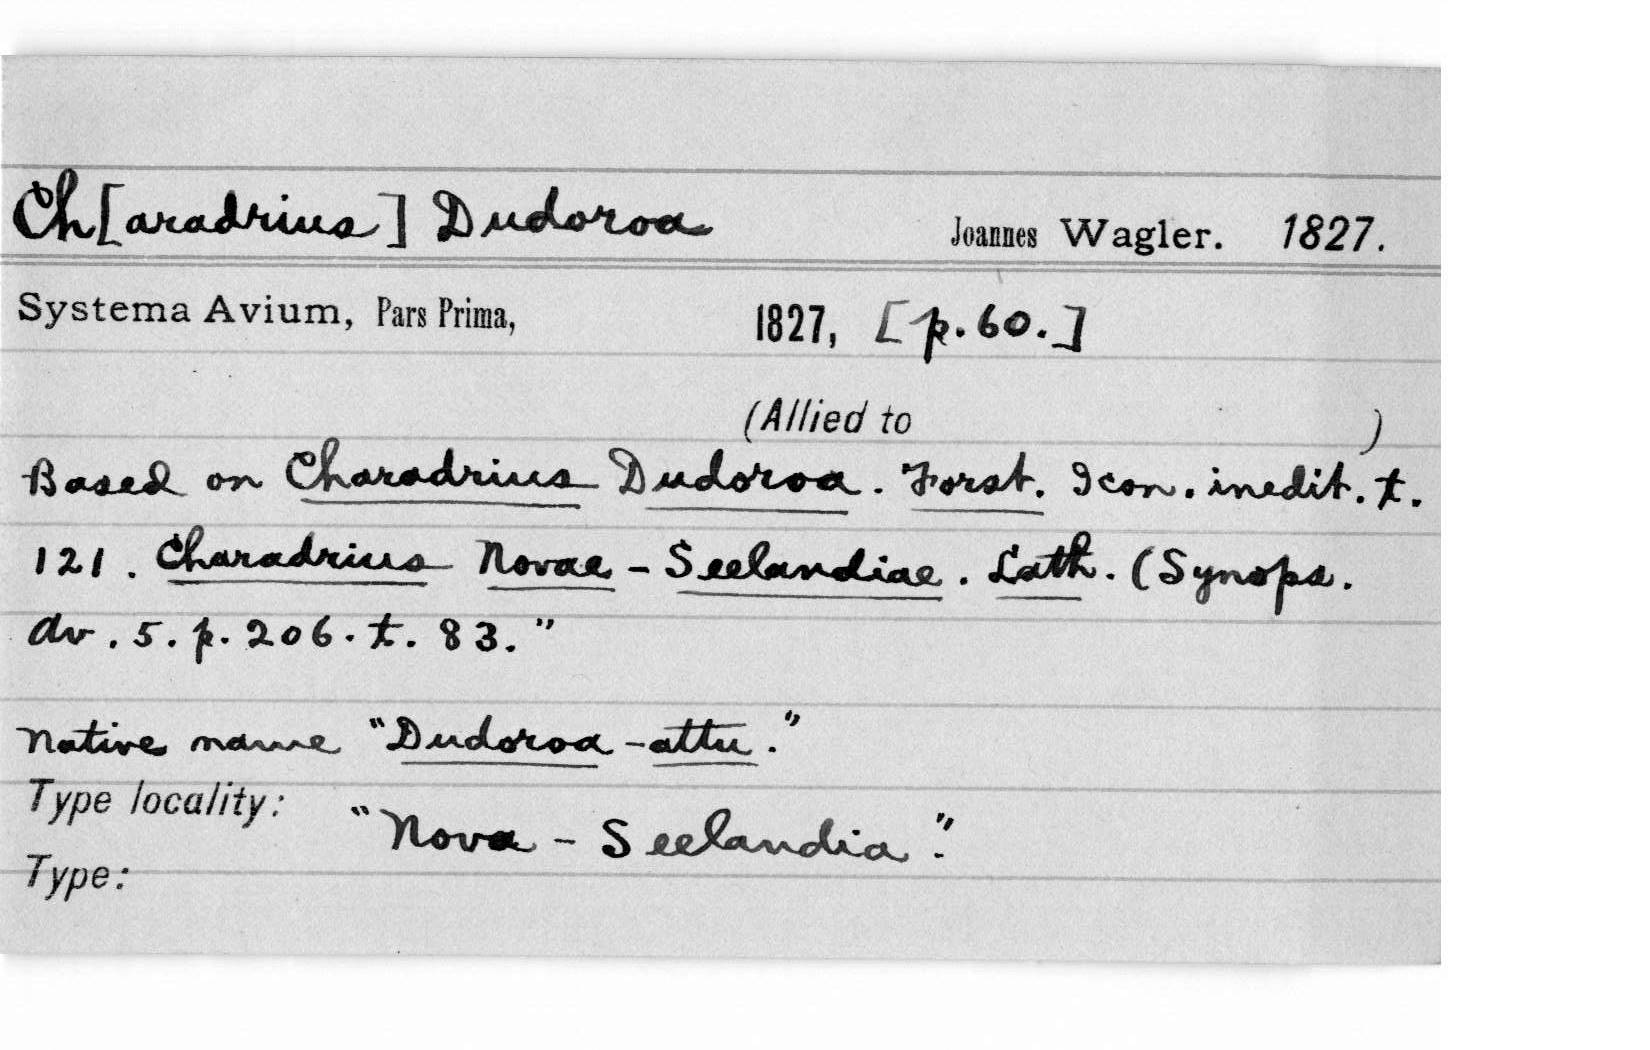 Ch[aradrius] Dudoroa Joannes Wagler. 1827.
Systema Avium, Pars Prima, 1827, [p. 60.]
(Allied to )
Based on Charadrius Dudoroa. Forst. Icon. inedit. t.
121. Charadrius Novae-Seelandiae. Lath. (Synops.
Av. 5. p. 206. t. 83."
Native name "Dudoroa-attu."
Type locality: "Nova-Seelandia."
Type: